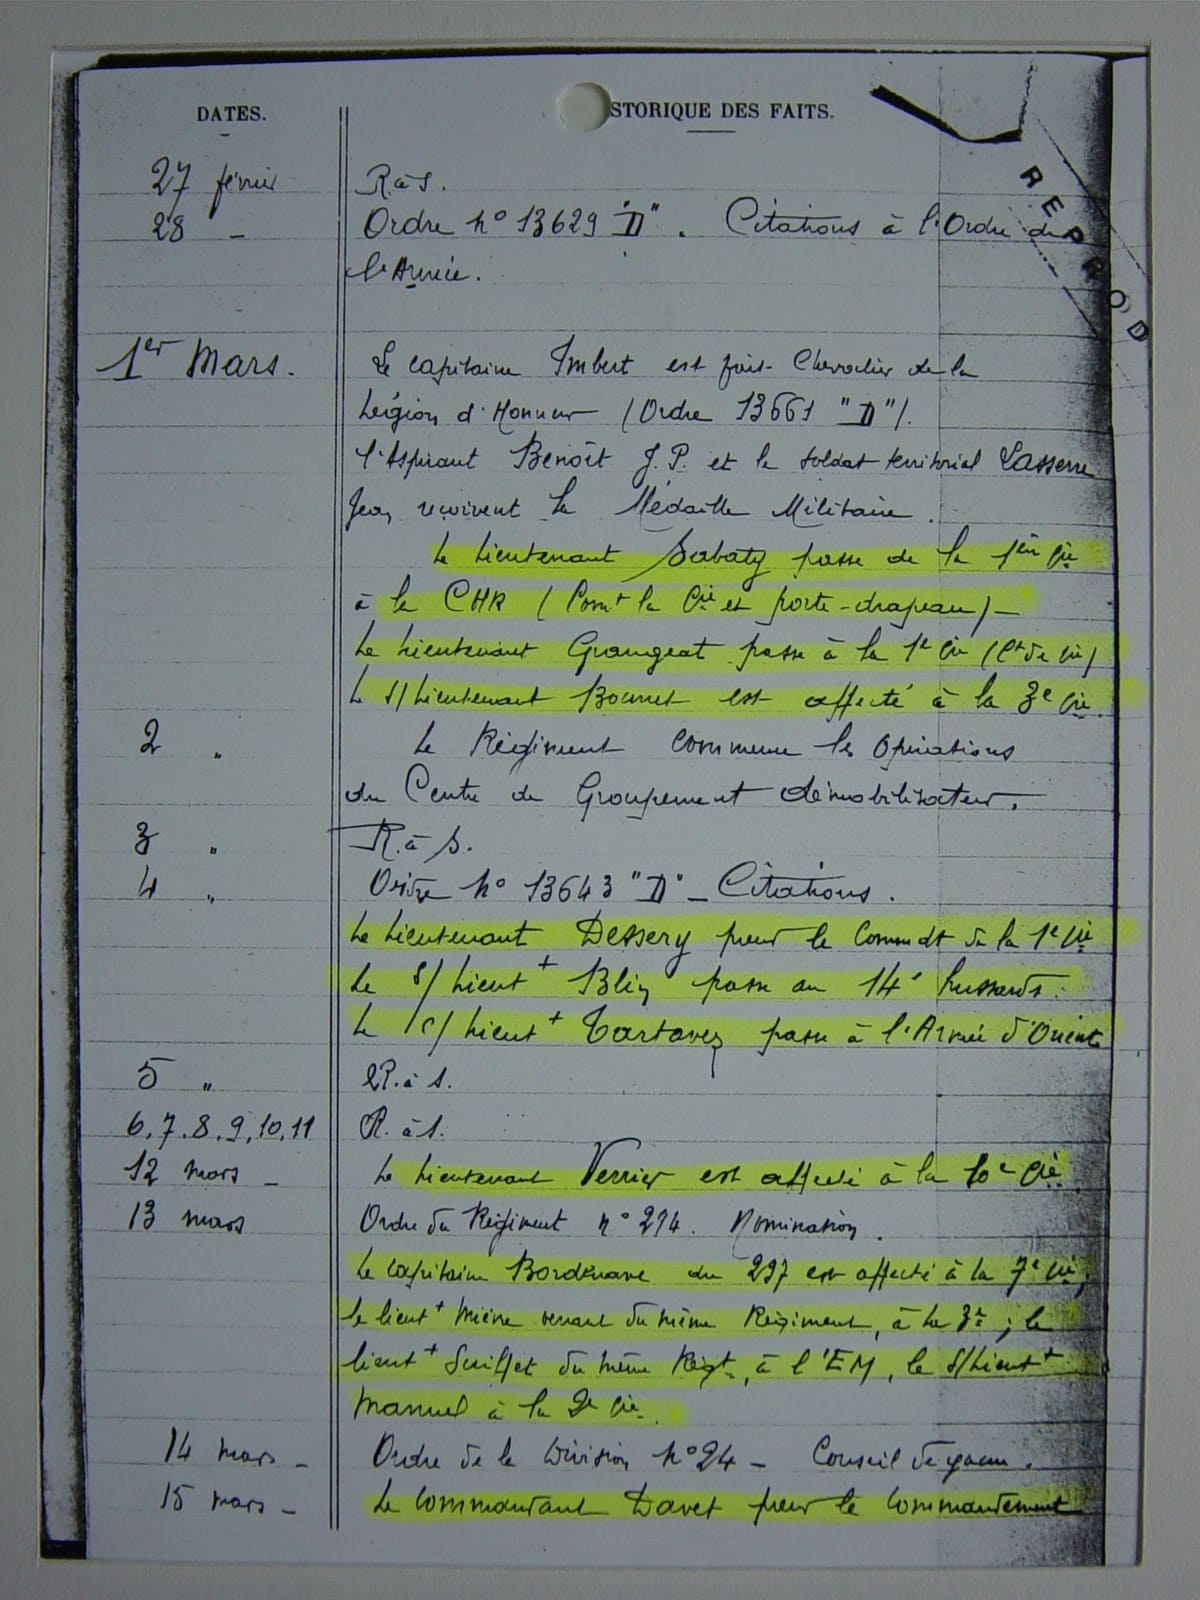 DATES. STORIQUE DES FAITS.
REPROD
27 février R. à S.
28 - Ordre n° 13629 "D". Citations à l'Ordre de
l'Armée.
1er Mars. Le capitaine Imbert est fait Chevalier de la
Légion d'Honneur (Ordre 13661 "D").
l'Aspirant Benoît J.P. et le soldat territorial Lasserre
Jean reçoivent la Médaille Militaire.
Le Lieutenant Sabaty passe de la 1ère Cie
à la CHR (Comt la Cie et porte-drapeau) -
Le Lieutenant Grangeat passe à la 1e Cie (Ct de Cie)
Le S/Lieutenant Bonnet est affecté à la 3e Cie.
2 " Le Régiment commence les Opérations
du Centre de Groupement démobilisateur.
3 " R. à S.
4 " Ordre n° 13643 "D" - Citations.
Le Lieutenant Dessery prend le Commdt de la 1e Cie
Le S/Lieut+ Blin passe au 14e hussards.
Le S/Lieut+ Tartavez passe à l'Armée d'Orient
5 " R. à S.
6.7.8.9.10.11 R. à S.
12 mars - Le Lieutenant Verrier est affecté à la 10e Cie.
13 mars Ordre du Régiment n° 294. Nomination.
Le Capitaine Bordenave du 297 est affecté à la 7e Cie,
le lieut+ Mière venant du même Régiment, à la 3e ; le
lieut+ du même Régt, à l'EM, le S/Lieut+
Manuel à la 2e Cie.
14 mars - Ordre de la Division n° 24 - Conseil de guerre.
15 mars - Le Commandant Davet prend le Commandement